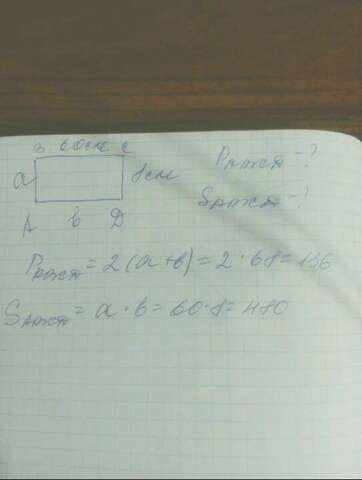 В 60см С
a 8см
A в D
Pпрям -?
Sпрям -?
Pпрям = 2(a+в) = 2·68 = 136
Sпрям = a·в = 60·8 = 480